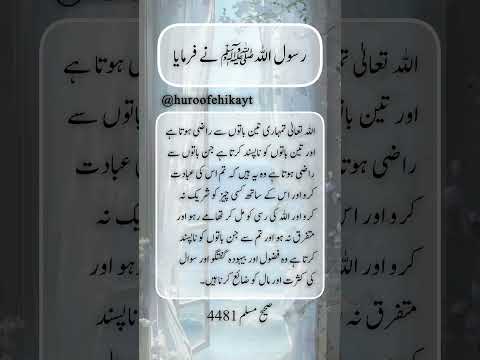 رسول اللہ ﷺ نے فرمایا
@huroofehikayt
اللہ تعالیٰ تمہاری تین باتوں سے راضی ہوتا ہے
اور تین باتوں کو ناپسند کرتا ہے جن باتوں سے
راضی ہوتا ہے وہ یہ ہیں کہ تم اس کی عبادت
کرو اور اس کے ساتھ کسی چیز کو شریک نہ
کرو اور اللہ کی رسی کو مل کر تھامے رہو اور
متفرق نہ ہو اور تم سے جن باتوں کو ناپسند
کرتا ہے وہ فضول اور بیہودہ گفتگو اور سوال
کی کثرت اور مال کو ضائع کرنا ہیں۔
صحیح مسلم 4481